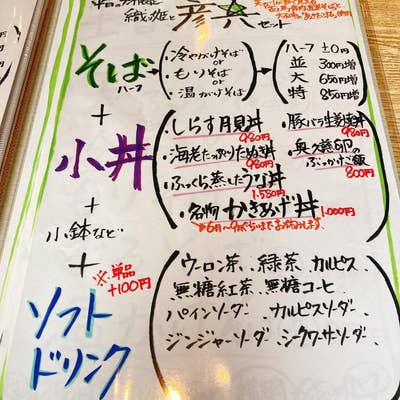 織姫と彦星セット
そば
ハーフ
・冷やがけそば
or
・もりそば
or
・温がけそば
ハーフ ±0円
並 300円増
大 650円増
特 850円増
+
小丼
・しらす月見丼
980円
・海老たっぷりたぬき丼
980円
・ふっくら蒸したうな丼
1,580円
・名物 かきあげ丼
1,000円
980円
・奥久慈卵の
ぶっかけご飯
800円
+
小鉢など
+
※単品
+100円
ソフト
ドリンク
ウーロン茶、緑茶、カルピス、
無糖紅茶、無糖コーヒー、
パインソーダー、カルピスソーダー、
ジンジャーソーダ、シークワーサーソーダ、